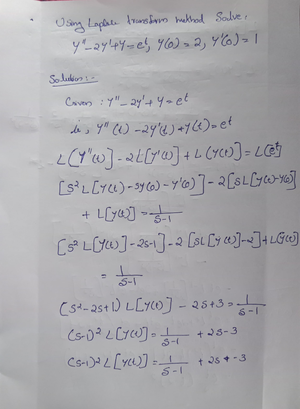 Using Laplace transform method Solve:
y"-2y'+y=e^t, y(0)=2, y'(0)=1
Solution:-
Given: y"-2y'+y=e^t
ie, y"(t)-2y'(t)+y(t)=e^t
L[y"(t)]-2L[y'(t)]+L(y(t)]=L(e^t)
[s²L[y(t)-sy(0)-y'(0)]-2[sL[y(t)-y(0)]
+L[y(t)]=1/(s-1)
[s²L[y(t)]-2s-1]-2[sL[y(t)]-2]+L(y(t)]
=1/(s-1)
(s²-2s+1)L[y(t)]-2s+3=1/(s-1)
(s-1)²L[y(t)]=1/(s-1)+2s-3
(s-1)²L[y(t)]=1/(s-1)+2s-3